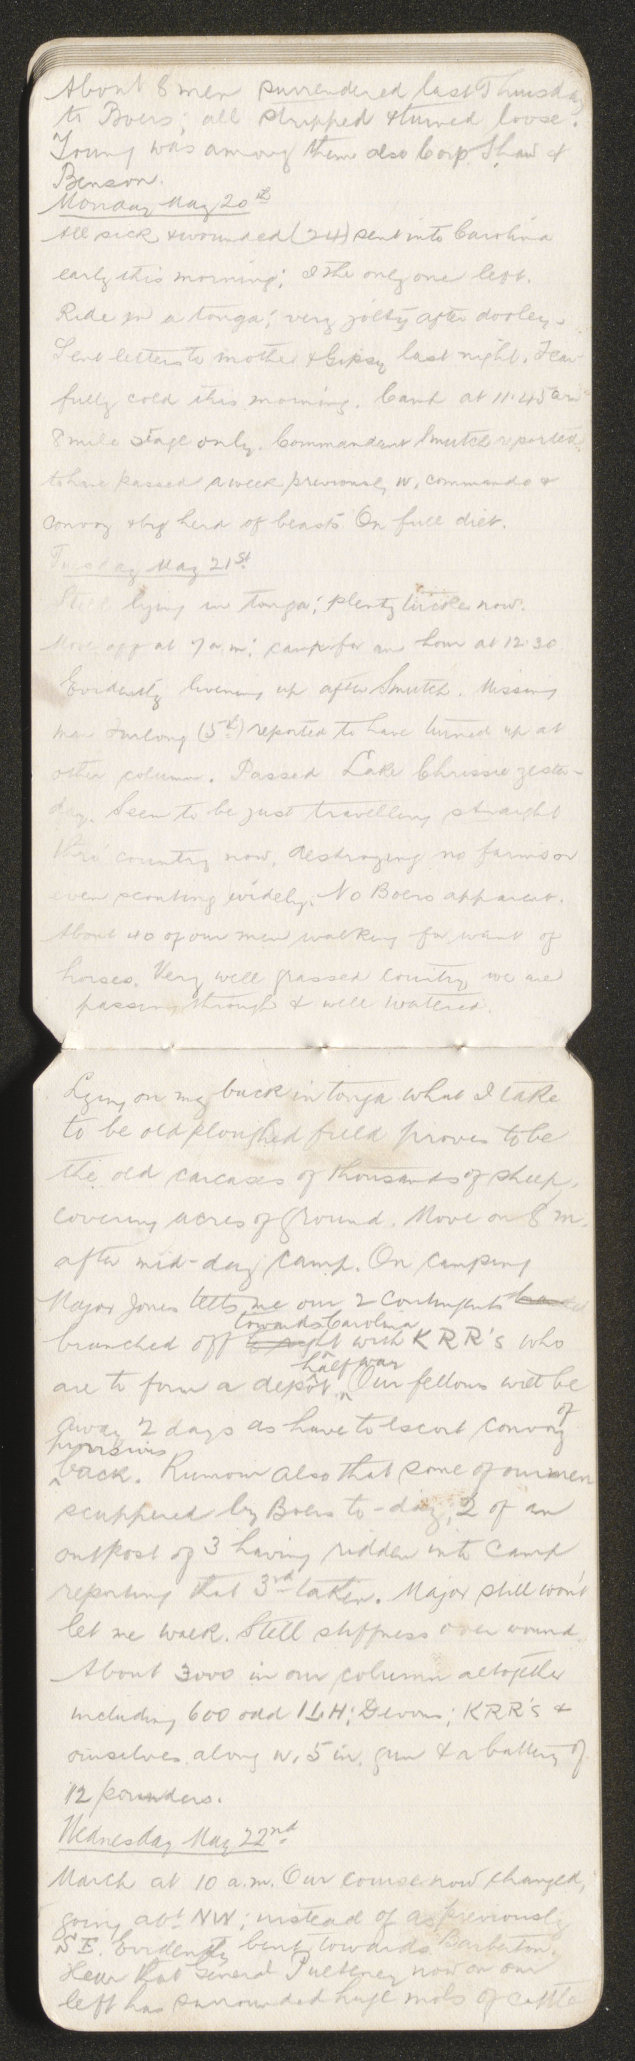 About 8 men surrendered last Thursday
to Boers; all stripped & turned loose.
Young was among them also Corp. Shaw &
Benson.
Monday May 20th
All sick & wounded (24) sent into Carolina
early this morning; I the only one left.
Ride in a tonga; very jolty after dooley.
Sent letters to mother & Gipsy last night. Fear
fully cold this morning. Camp at 11.45 am
8 mile stage only. Commandant Smutch reported
to have passed a week previously w. commando &
convoy & big herd of beasts. On full diet.
Tuesday May 21st
Still lying in tonga; plenty now.
Move off at 7 a.m; camp for an hour at 12.30
Evidently livening up after Smutch. Missing
man Furlong (5th) reported to have turned up at
other column. Passed Lake Chrissie yester-
day. Seem to be just travelling straight
thro' country now, destroying no farms or
even scouting widely. No Boers apparent.
About 40 of our men walking for want of
horses. Very well grassed country we are
passing through & well watered.
Lying on my back in tonga what I take
to be old ploughed field proves to be
the old carcases of thousands of sheep,
covering acres of ground. Move on 8 m.
after mid-day camp. On camping
Major Jones tells me our 2 contingents
towards Carolina
branched off with KRR's who
half way
are to form a depôt. Our fellows will be
away 2 days as have to escort convoy of
provisions
back. Rumour also that some of our men
scuppered by Boers to-day, 2 of an
outpost of 3 having ridden into camp
reporting that 3rd taken. Major still won't
let me walk. Still stiffness over wound.
About 3000 in our column altogether
including 600 odd ILH; Devons; KRR's &
ourselves along w. 5 in. gun & a battery of
12 pounders.
Wednesday May 22nd
March at 10 a.m. Our course now changed;
going abt NW; instead of as previously
S E. Evidently bent towards Barberton.
Hear that General Pulteney now on our
left has surrounded huge mobs of cattle